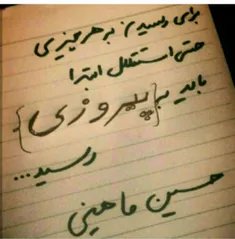 برای رسیدن به هر چیزی
حتی استقلال ابتدا
باید به {پیروزی}
رسید...
حسین ماهینی